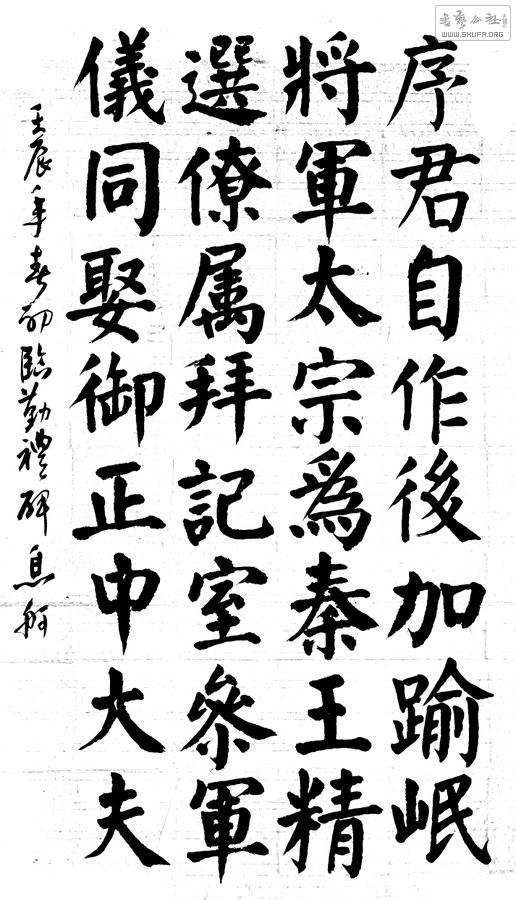 序君自作後加踰岷
將軍太宗爲秦王精
選僚属拜記室參軍
儀同娶御正中大夫
壬辰年春初臨勤禮碑息
書藝公社
WWW.SHUFA.ORG